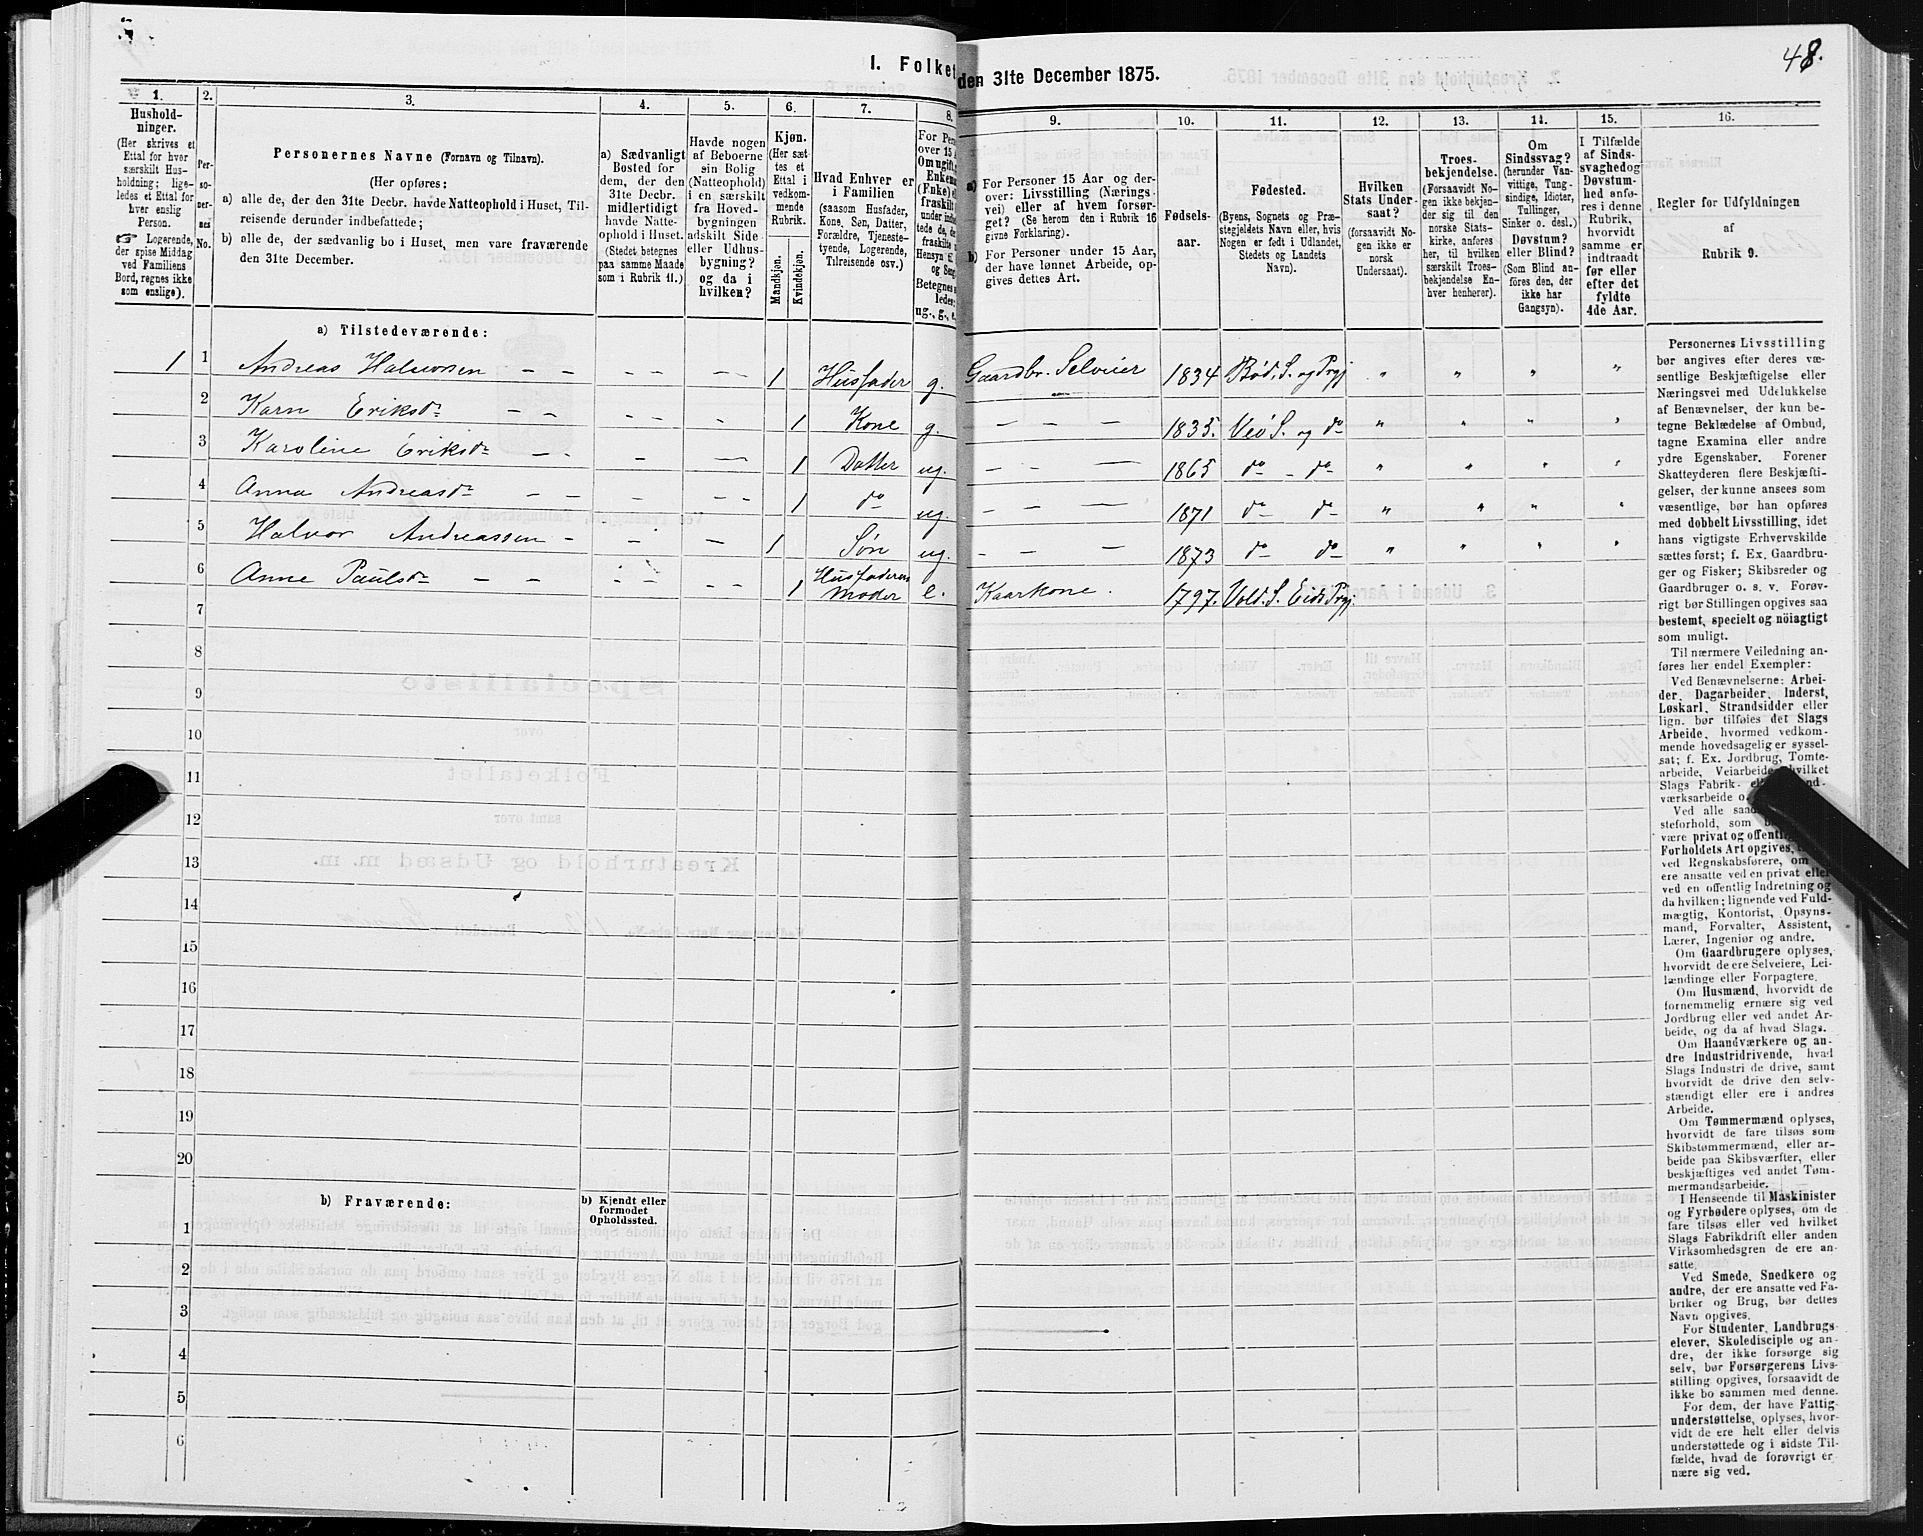 48.
I. Folket
den 31te December 1875.
1. 2. 3. 4. 5. 6. 7. 8. 9. 10. 11. 12. 13. 14. 15. 16.
Hushold-
ninger.
(Her skrives et
Ettal for hver
særskilt Hus-
holdning; lige-
ledes et Ettal for
hver enslig
Person.
☞ Logerende,
der spise Middag
ved Familiens
Bord, regnes ikke
som enslige).
Per-
so-
ner-
nes
No.
Personernes Navne (Fornavn og Tilnavn).
(Her opføres:
a) alle de, der den 31te Decbr. havde Natteophold i Huset, Til-
reisende derunder indbefattede;
b) alle de, der sædvanlig bo i Huset, men vare fraværende
den 31te December.
a) Sædvanligt
Bosted for
dem, der den
31te Decbr.
midlertidigt
havde Natte-
ophold i Huset.
(Stedet betegnes
paa samme Maade
som i Rubrik 11.)
Havde nogen
af Beboerne
sin Bolig
(Natteophold)
i en særskilt
fra Hoved-
bygningen
adskilt Side
eller Udhus-
bygning?
og da i
hvilken?
Kjøn.
(Her sæt-
tes et
Ettal i
vedkom-
mende
Rubrik.
Mandkjøn.
Kvindekjøn.
Hvad Enhver er
i Familien
(saasom Husfader,
Kone, Søn, Datter,
Forældre, Tjeneste-
tyende, Logerende,
Tilreisende osv.)
For Pers
over 15 A
Omugift,
Enkem
(Fnke) e
fraskilt
under ind
tede de,
fraskilte
Hensyn t
og Seng
Betegnes s
ledes:
ug., g., e,
a) For Personer 15 Aar og der-
over: Livsstilling (Nærings-
vei) eller af hvem forsør-
get? (Se herom den i Rubrik 16
givne Forklaring).
b) For Personer under 15 Aar,
der have lønnet Arbeide, op-
gives dettes Art.
Fødsels-
aar.
Fødested.
(Byens, Sognets og Præ-
stegjeldets Navn eller, hvis
Nogen er født i Udlandet,
Stedets og Landets
Navn).
Hvilken
Stats Under-
saat?
(forsaavidt No-
gen ikke er
norsk
Undersaat).
Troes-
bekjendelse.
(Forsaavidt No-
gen ikke bekjen-
der sig til den
norske Stats-
kirke, anføres
her, til hvilken
særskilt Troes-
bekjendelse En-
hver henhører).
Om
Sindssvag?
(herunder Van-
vittige, Tung-
sindige, Idioter,
Tullinger,
Sinker o. desl.)
Døvstum?
eller Blind?
(Som Blind an-
føres den, der
ikke har
Gangsyn).
I Tilfælde
af Sinds-
svaghed og
Døvstum-
hed anfø-
res i denne
Rubrik,
hvorvidt
samme er
indtraadt
før eller
efter det
fyldte
4de Aar.
Regler for Udfyldningen
af
Rubrik 9.
a) Tilstedeværende:
1 1 Andreas Halvorsen 1 Husfader g. Gaardbr. Selveier 1834 Bød. S. og Prgj
2 Karn Eriksdr 1 Kone g. 1835. Veø S. og do
3 Karoline Eriksdr 1 Datter ug. 1865 do - do
4 Anna Andreasdr 1 do ug. 1871 do do
5 Halvor Andreassen 1 Søn ug. 1873 do do
6 Anne Paulsdr 1 Husfaderens Moder e. Kaarkone. 1797. Vold. S. Eids Prgj.
7
8
9
10
11
12
13
14
15
16
17
18
19
20
b) Fraværende:
b) Kjendt eller
formodet
Opholdssted.
1
2
3
4
5
6
Personernes Livsstilling
bør angives efter deres væ-
sentlige Beskjæftigelse eller
Næringsvei med Udelukkelse
af Benævnelser, der kun be-
tegne Beklædelse af Ombud,
tagne Examina eller andre
ydre Egenskaber. Forener
Skatteyderen flere Beskjæfti-
gelser, der kunne ansees som
væsentlige, bør han opføres
med dobbelt Livsstilling, idet
hans vigtigste Erhvervskilde
sættes først; f. Ex. Gaardbru-
ger og Fisker; Skibsreder og
Gaardbruger o. s. v. Forøv-
rigt bør Stillingen opgives saa
bestemt, specielt og nöiagtigt
som muligt.
Til nærmere Veiledning an-
føres her endel Exempler:
Ved Benævnelserne: Arbei-
der, Dagarbeider, Inderst,
Løskarl, Strandsidder eller
lign. bør tilføies det Slags
Arbeide, hvormed vedkom-
mende hovedsagelig er syssel-
sat; f. Ex. Jordbrug, Tomte-
arbeide, Veiarbeide, hvilket
Slags Fabrik-
værksarbeide o.
Ved alle saad
steforhold, som
være privat og offentlig
Forholdets Art opgives,
ved Regnskabsførere, om
ere ansatte ved en privat eller
ved en offentlig Indretning og
da hvilken; lignende ved Fuld-
mægtig, Kontorist, Opsyns-
mand, Forvalter, Assistent,
Lærer, Ingeniør og andre.
Om Gaardbrugere oplyses,
hvorvidt de ere Selveiere, Lei-
lændinge eller Forpagtere.
Om Husmænd, hvorvidt de
fornemmelig ernære sig ved
Jordbrug eller ved andet Ar-
beide, og da af hvad Slags.
Om Haandværkere og an-
dre Industridrivende, hvad
Slags Industri de drive, samt
hvorvidt de drive den selv-
stændigt eller ere i andres
Arbeide.
Om Tømmermænd oplyses,
hvorvidt de fare tilsøs som
Skibstømmermænd, eller ar-
beide paa Skibsværfter, eller
beskjæftiges ved andet Tøm-
mermandsarbeide.
I Henseende til Maskinister
og Fyrbødere oplyses, om de
fare tilsøs eller ved hvilket
Slags Fabrikdrift eller anden
Virksomhedsgren de ere an-
satte.
Ved Smede, Snedkere og
andre, der ere ansatte ved Fa-
briker og Brug, bør dettes
Navn opgives.
For Studenter, Landbrugs-
elever, Skoledisciple og an-
dre, der ikke forsørge sig
selv, bør Forsørgerens Livs-
stilling opgives, forsaavidt de
ikke bo sammen med denne.
For dem, der have Fattig-
understøttelse, oplyses, hvor-
vidt de ere helt eller delvis
understøttede og i sidste Til-
fælde, hvad de forøvrigt er-
nære sig ved.